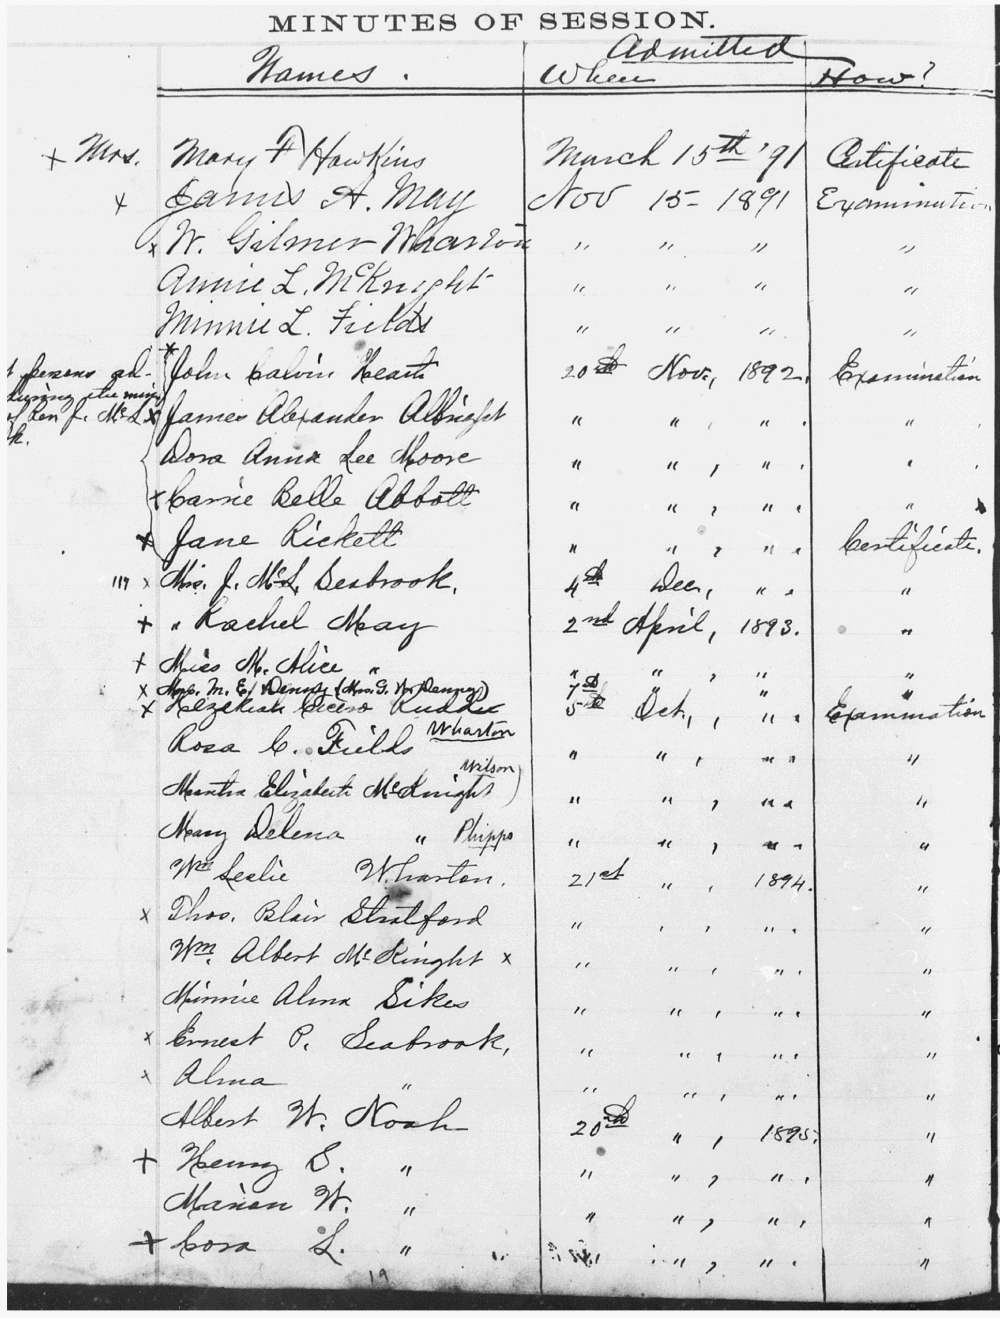 MINUTES OF SESSION.
Admitted
Names. When How?
+ Mrs. Mary F Hawkins March 15th '91 Certificate
x James A. May Nov 15- 1891 Examination
x W. Gilmer Wharton " " " "
Annie L. McKnight " " " "
Minnie L. Fields " " " "
x John Calvin Heath 20th Nov., 1892. Examination
persons ad-
during the
of Rev. J. McL
k.
x James Alexander Albright " " , " . "
Dora Anna Lee Moore " " , " . "
x Carrie Belle Abbott " " , " . "
x Jane Rickett " " , " . Certificate.
119 x Mrs. J. McL. Seabrook. 4th Dec., " . "
+ " Rachel May 2nd April, 1893. "
+ Miss M. Alice " " " , " . "
x Mrs. M. E. Denny (Mrs. G. W. Denny) 7th " "
x Hezekiah Cicero Rudder 5th Oct., " . Examination
Rosa C. Fields Wharton " " , " . "
Martha Elizabeth McKnight Wilson) " " , " . "
Mary Delena " Phipps " " , " . "
Wm Leslie Wharton. 21st " , 1894. "
x Thos. Blair Stratford " " , " . "
Wm. Albert McKinght x " " , " . "
Minnie Alma Sikes " " , " . "
x Ernest P. Seabrook. " " , " . "
x Alma " " " , " . "
Albert W. Noah 20th " , 1895. "
+ Henry S. " " " , " . "
Marion W. " " " , " . "
+ Cora L. " " , " . "
19